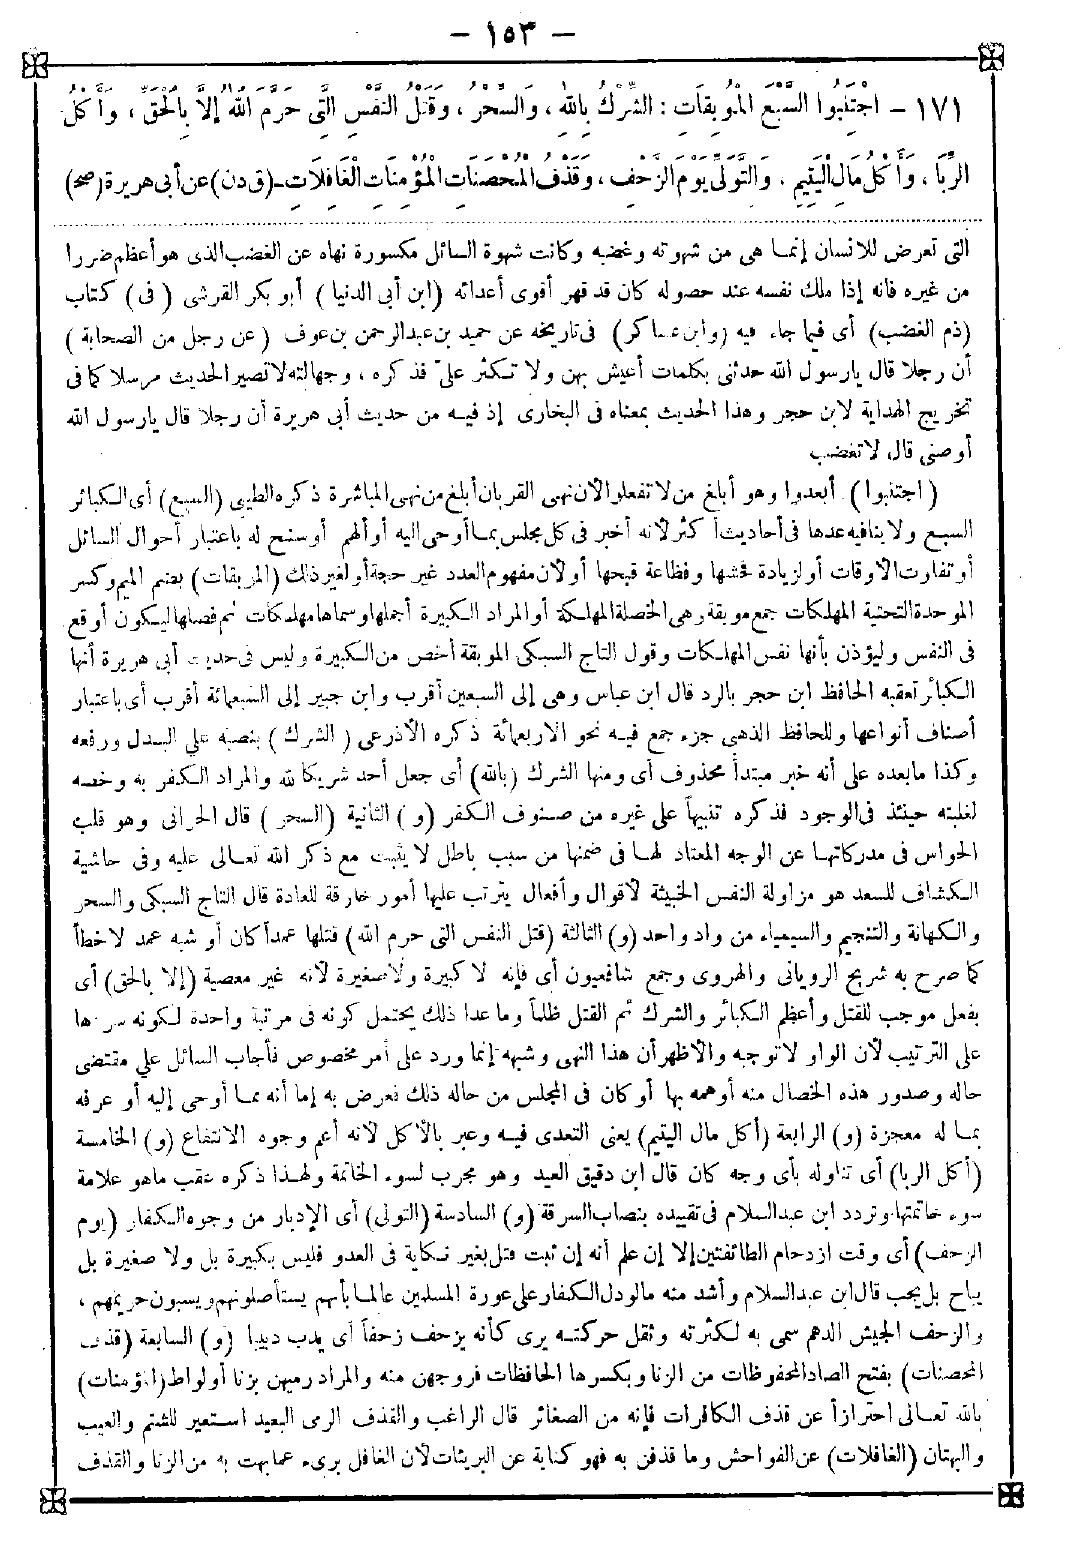 – ١٥٣ –
١٧١ – اجْتَنِبُوا السَّبْعَ الْمُوبِقَاتِ : الشِّرْكُ بِاللهِ ، وَالسِّحْرُ ، وَقَتْلُ النَّفْسِ الَّتِي حَرَّمَ اللهُ إلاَّ بِالْحَقِّ ، وَأَكْلُ
الرِّبَا ، وَأَكْلُ مَالِ الْيَتِيمِ ، وَالتَّوَلِّي يَوْمَ الزَّحْفِ ، وَقَذْفُ الْمُحْصَنَاتِ الْمُؤْمِنَاتِ الْغَافِلَاتِ ـ (ق د ن) عن أبى هريرة (صح)
التى تعرض للانسان إنما هى من شهوته وغضبه وكانت شهوة السائل مكسورة نهاه عن الغضب الذى هو أعظم ضررا
من غيره فانه إذا ملك نفسه عند حصوله كان قد قهر أقوى أعدائه (ابن أبى الدنيا) أبو بكر القرشى (فى) كتاب
(ذم الغضب) أى فيما جاء فيه (وابن عساكر) فى تاريخه عن حميد بن عبد الرحمن بن عوف (عن رجل من الصحابة)
أن رجلا قال يارسول الله حدثنى بكلمات أعيش بهن ولا تكثر علىّ فذكره ، وجهالته لا تصير الحديث مرسلا كما فى
تخريج الهداية لابن حجر وهذا الحديث بمعناه فى البخارى إذ فيه من حديث أبى هريرة أن رجلا قال يارسول الله
أوصنى قال لا تغضب
(اجتنبوا) أبعدوا وهو أبلغ من لا تفعلوا لأن نهى القربان أبلغ من نهى المباشرة ذكره الطيبى (السبع) أى الكبائر
السبع ولا ينافيه عدها فى أحاديث أكثر لأنه أخبر فى كل مجلس بما أوحى اليه أو ألهم أو سنح له باعتبار أحوال السائل
أو تفاوت الأوقات أو لزيادة فحشها وفظاعة قبحها أو لأن مفهوم العدد غير حجة أو لغير ذلك (الموبقات) بضم الميم وكسر
الموحدة التحتية المهلكات جمع موبقة وهى الخصلة المهلكة أو المراد الكبيرة أجملها وسماها مهلكات ثم فصلها ليكون أوقع
فى النفس وليؤذن بأنها نفس المهلكات وقول التاج السبكى الموبقة أخص من الكبيرة وليس فى حديث أبى هريرة أنها
الكبائر تعقبه الحافظ ابن حجر بالرد قال ابن عباس وهى إلى السبعين أقرب وابن جبير إلى السبعمائة أقرب أى باعتبار
أصناف أنواعها وللحافظ الذهبى جزء جمع فيه نحو الاربعمائة ذكره الأذرعى (الشرك) بنصبه على البدل ورفعه
وكذا مابعده على أنه خبر مبتدأ محذوف أى ومنها الشرك (بالله) أى جعل أحد شريكا لله والمراد الكفر به وخصه
لغلبته حينئذ فى الوجود فذكره تنبيهاً على غيره من صنوف الكفر (و) الثانية (السحر) قال الحرانى وهو قلب
الحواس فى مدركاتها عن الوجه المعتاد لها فى ضمنها من سبب باطل لا يثبت مع ذكر الله تعالى عليه وفى حاشية
الكشاف للسعد هو مزاولة النفس الخبيثة لأقوال وأفعال يترتب عليها أمور خارقة للعادة قال التاج السبكى والسحر
والكهانة والتنجيم والسيمياء من واد واحد (و) الثالثة (قتل النفس التى حرم الله) قتلها عمدا كان أو شبه عمد لا خطأ
كما صرح به شريح الرويانى والهروى وجمع شافعيون أى فإنه لا كبيرة ولا صغيرة لأنه غير معصية (إلا بالحق) أى
بفعل موجب للقتل وأعظم الكبائر والشرك ثم القتل ظلماً وما عدا ذلك يحتمل كونه فى مرتبة واحدة لكونه سردها
على الترتيب لأن الواو لا توجبه والأظهر أن هذا النهى وشبهه إنما ورد على أمر مخصوص فأجاب السائل على مقتضى
حاله وصدور هذه الخصال منه أو همه بها أو كان فى المجلس من حاله ذلك فعرض به إما أنه مما أوحى إليه أو عرفه
بما له معجزة (و) الرابعة (أكل مال اليتيم) يعنى التعدى فيه وعبر بالأكل لأنه أعم وجوه الانتفاع (و) الخامسة
(أكل الربا) أى تناوله بأى وجه كان قال ابن دقيق العيد وهو مجرب لسوء الخاتمة ولهذا ذكره عقب ماهو علامة
سوء خاتمتها وتردد ابن عبد السلام فى تقييده بنصاب السرقة (و) السادسة (التولى) أى الإدبار من وجوه الكفار (يوم
الزحف) أى وقت ازدحام الطائفتين إلا إن علم أنه إن ثبت قتل بغير نكاية فى العدو فليس بكبيرة بل ولا صغيرة بل
يباح بل يجب قال ابن عبد السلام وأشد منه مالو دل الكفار على عورة المسلمين عالما بأنهم يستأصلونهم ويسبون حريمهم ،
والزحف الجيش الدهم سمى به لكثرته وثقل حركته يرى كأنه يزحف زحفاً أى يدب دبيبا (و) السابعة (قذف
المحصنات) بفتح الصاد المحفوظات من الزنا وبكسرها الحافظات فروجهن منه والمراد رميهن بزنا أو لواط (المؤمنات)
بالله تعالى احترازاً عن قذف الكافرات فإنه من الصغائر قال الراغب والقذف الرمى البعيد استعير للشتم والعيب
والبهتان (الغافلات) عن الفواحش وما قذفن به فهو كناية عن البريئات لأن الغافل برىء عما بهت به من الزنا والقذف